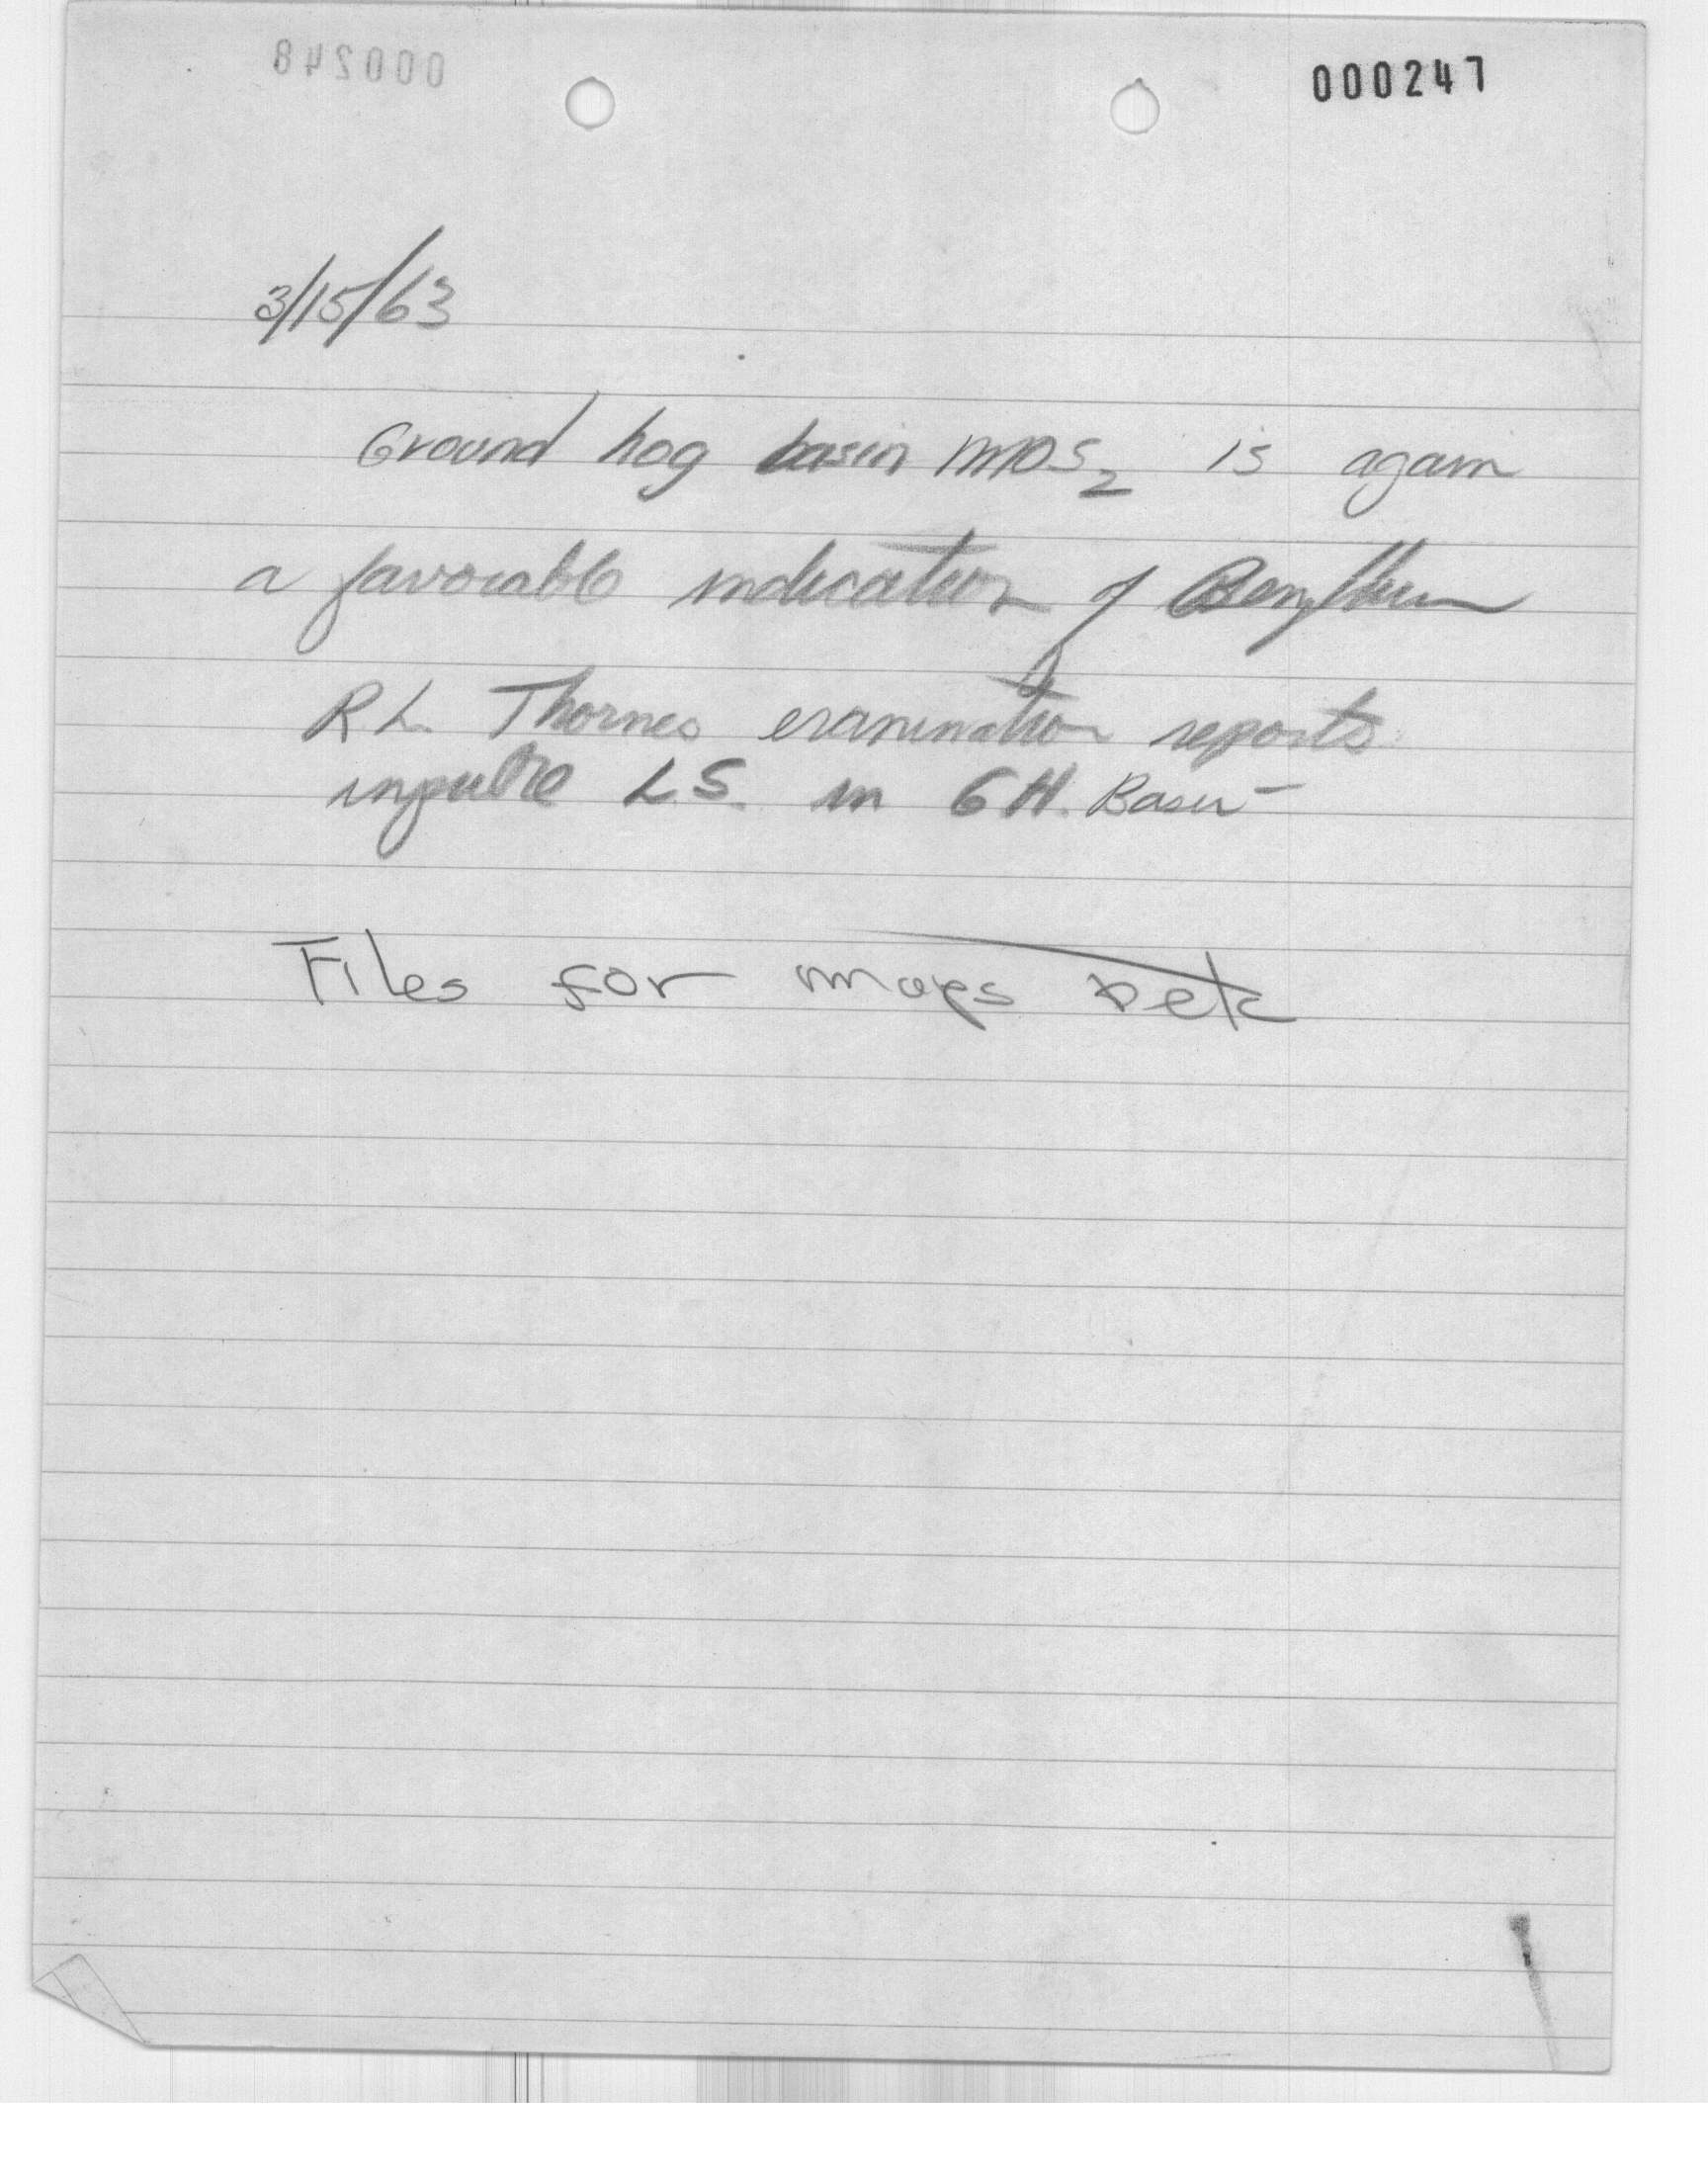 000247
000248
3/15/63
Ground hog basin MOS2 is again
a favorable indication of Beryllium
R L. Thornes examination reports
L.S. in G H. Basin -
Files for maps